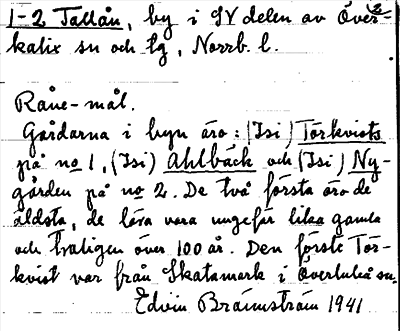 1-2 Tallån, by i SV delen av Över-
kalix sn och lg, Norrb. l.
Råne-mål.
Gårdarna i byn äro: (Isi) Törkvists
på no 1, (Isi) Ahlbäck och (Isi) Ny-
gården på no 2. De två första äro de
äldsta, de lära vara ungefär lika gamla
och troligen över 100 år. Den förste Tör-
kvist var från Skatamark i Överluleå sn.
Edvin Brännström 1941